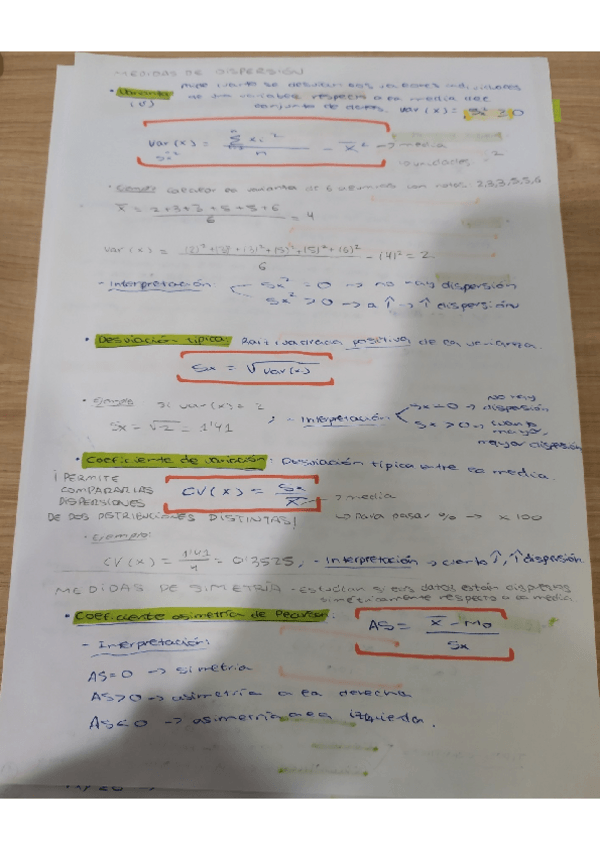 MEDIDAS DE DISPERSIÓN
• Varianza: mide cuanto se desvían los valores individuales
(V) de una variable respecto a la media del
conjunto de datos. Var(x) = Sx² ≥ 0
Var(x) = Σ xi² / n - x̄² → media
Sx²
• Ejemplo: calcular la varianza de 6 alumnos con notas: 2,3,3,5,5,6
x̄ = 2+3+3+5+5+6 / 6 = 4
Var(x) = (2)²+(3)²+(3)²+(5)²+(5)²+(6)² / 6 - (4)² = 2
- Interpretación Sx² = 0 → no hay dispersión
Sx² > 0 → a ↑ → ↑ dispersión
• Desviación típica: Raíz cuadrada positiva de la varianza.
Sx = √Var(x)
• Ejemplo: si var(x) = 2
Sx = √2 = 1'41 ; - Interpretación: Sx = 0 → no hay dispersión
Sx > 0 → cuanto mayor, mayor dispersión
• Coeficiente de variación: Desviación típica entre la media.
¡PERMITE
COMPARAR LAS
DISPERSIONES
DE DOS DISTRIBUCIONES DISTINTAS!
CV(x) = Sx / x̄ → media
↳ Para pasar % → x 100
• Ejemplo:
CV(x) = 1'41 / 4 = 0'3525, - Interpretación → cuanto ↑, ↑ dispersión
MEDIDAS DE SIMETRÍA - Estudian si los datos están dispersos
simétricamente respecto a la media.
• Coeficiente asimetría de Pearson. AS = x̄ - Mo / Sx
- Interpretación:
AS = 0 → simetría
AS > 0 → asimetría a la derecha
AS < 0 → asimetría a la izquierda.